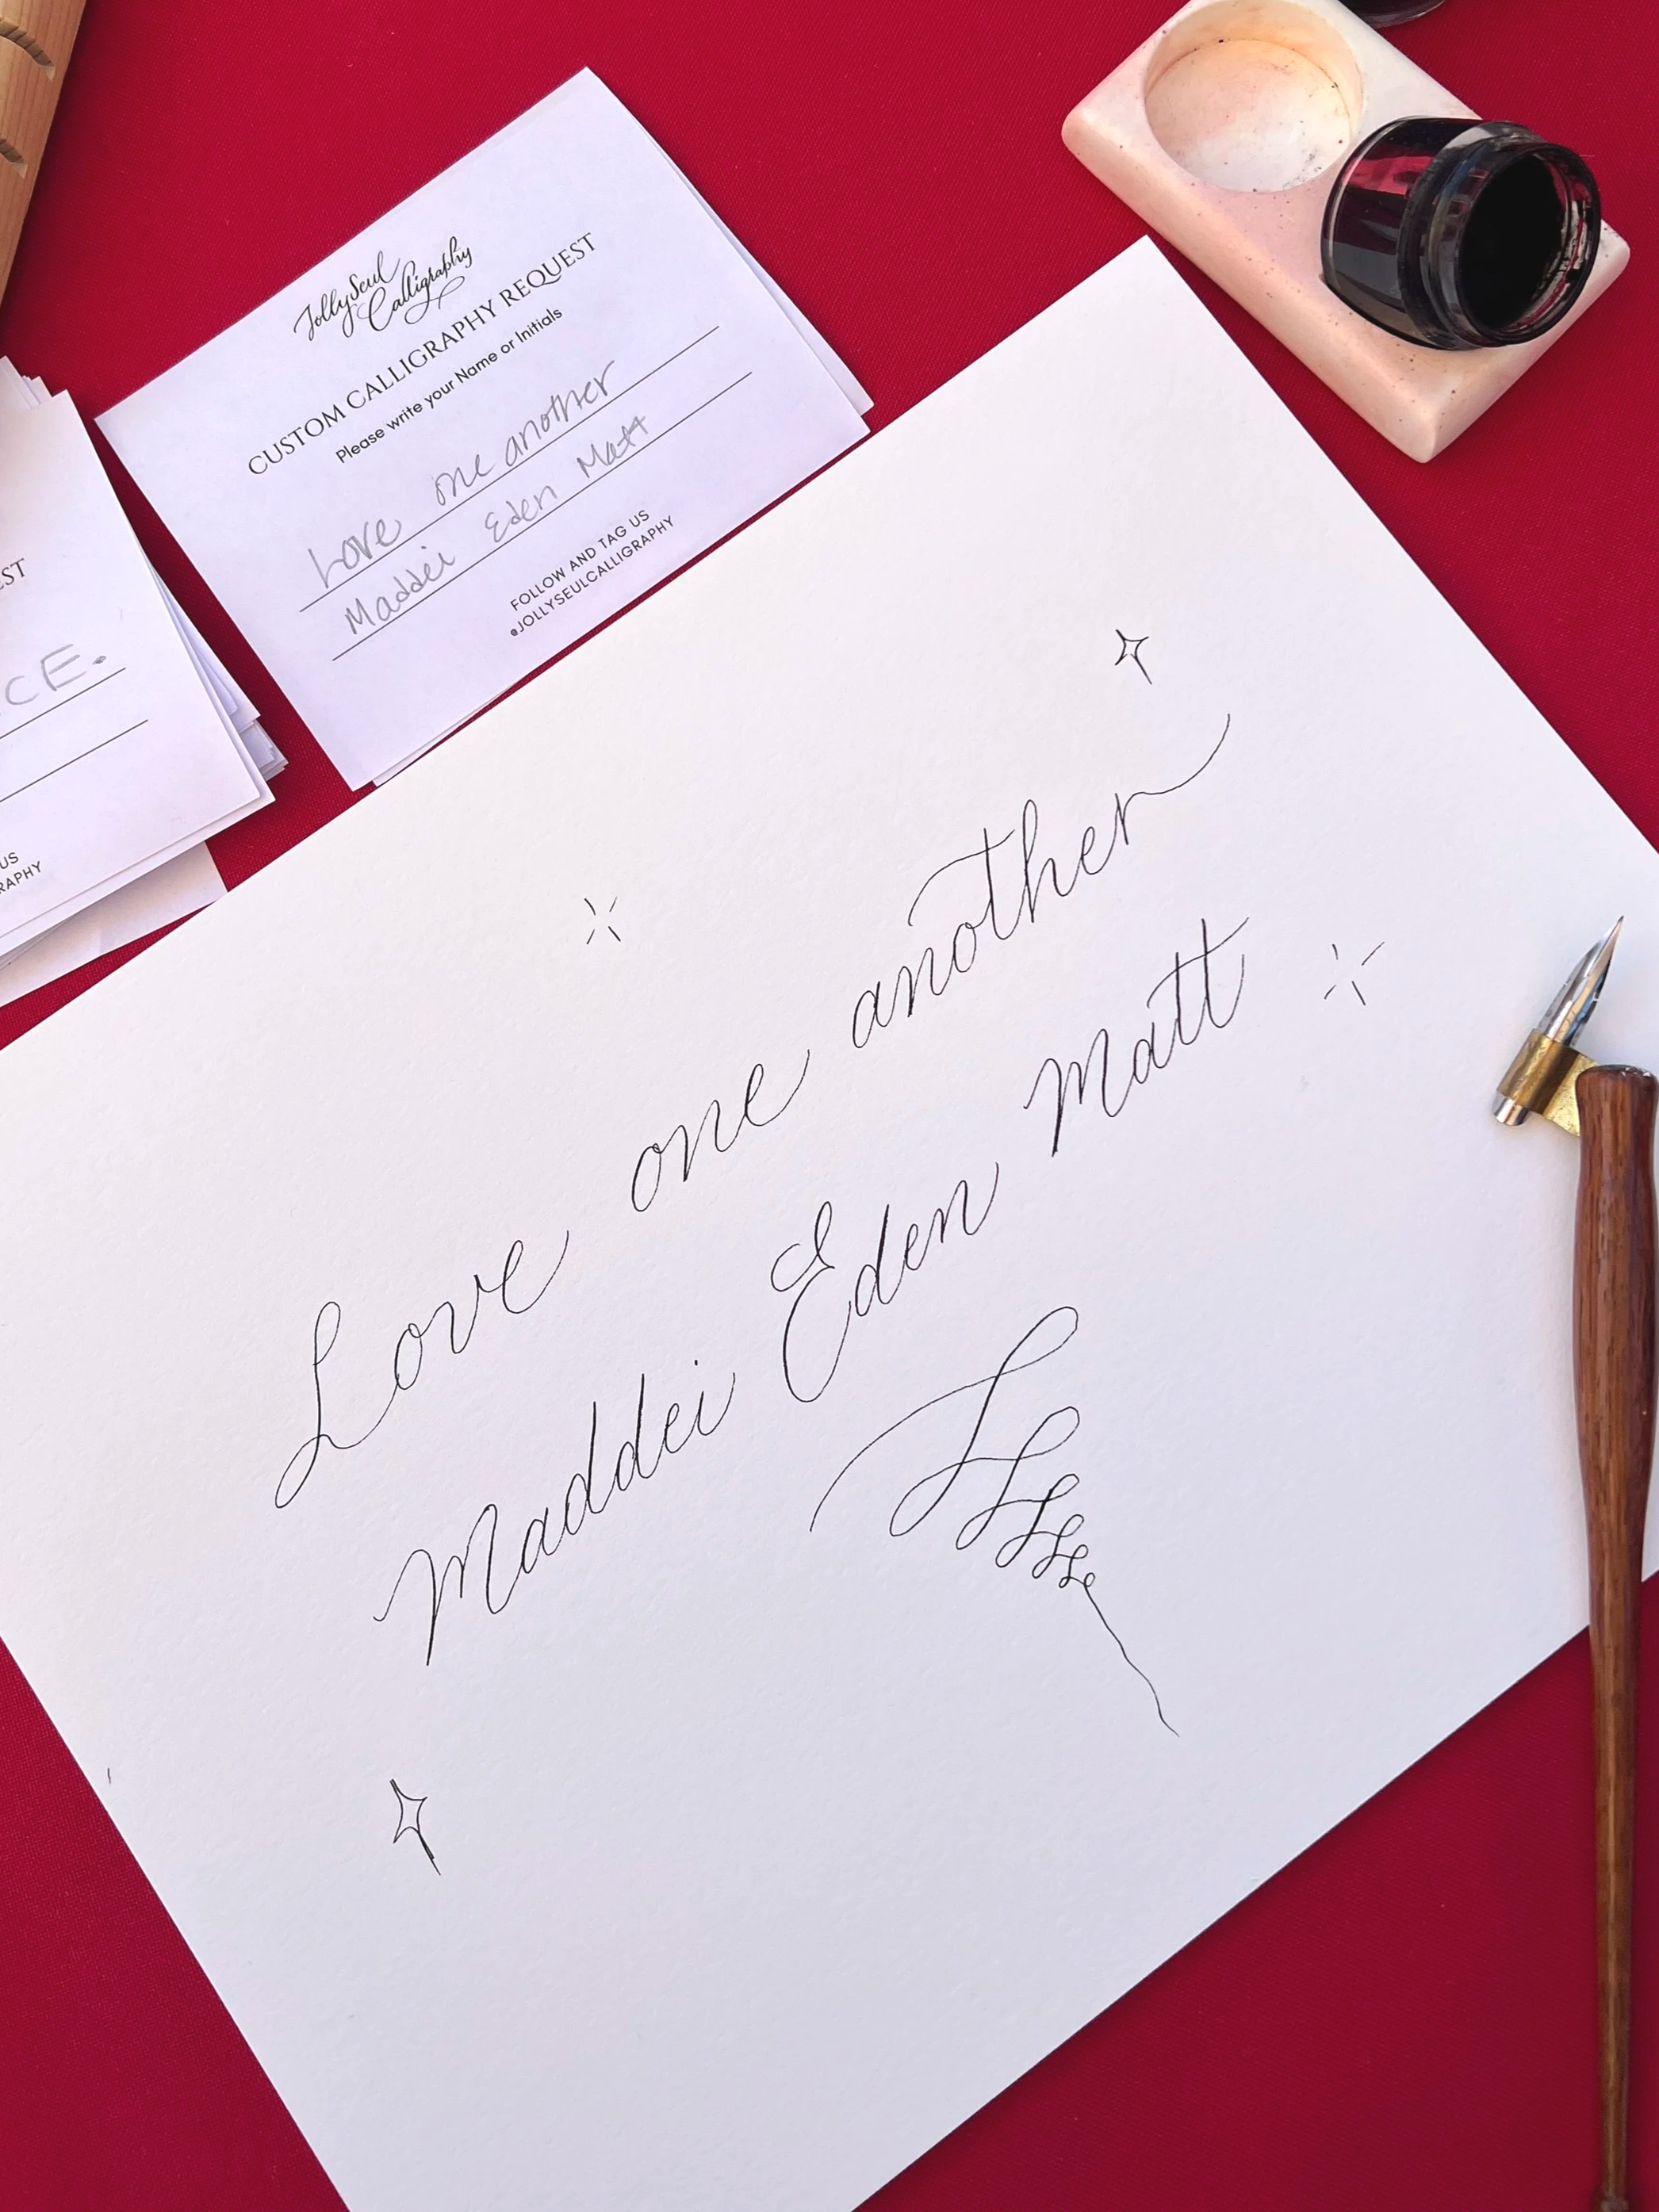 JollySeul
Calligraphy
CUSTOM CALLIGRAPHY REQUEST
Please write your Name or Initials
Love one another
Maddei Eden Matt
FOLLOW AND TAG US
@JOLLYSEULCALLIGRAPHY
EST
CE.
US
RAPHY
Love one another
Maddei Eden Matt